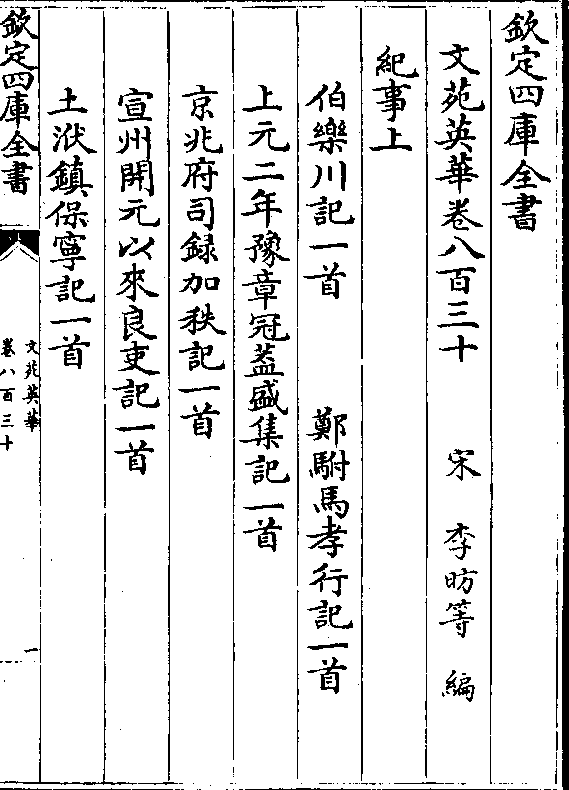 欽定四庫全書
文苑英華卷八百三十 宋 李昉等 編
紀事上
伯樂川記一首 鄭駙馬孝行記一首
上元二年豫章冠葢盛集記一首
京兆府司録加秩記一首
宣州開元以來良吏記一首
土洑鎮保寧記一首
欽定四庫全書
文苑英華
卷八百三十
一